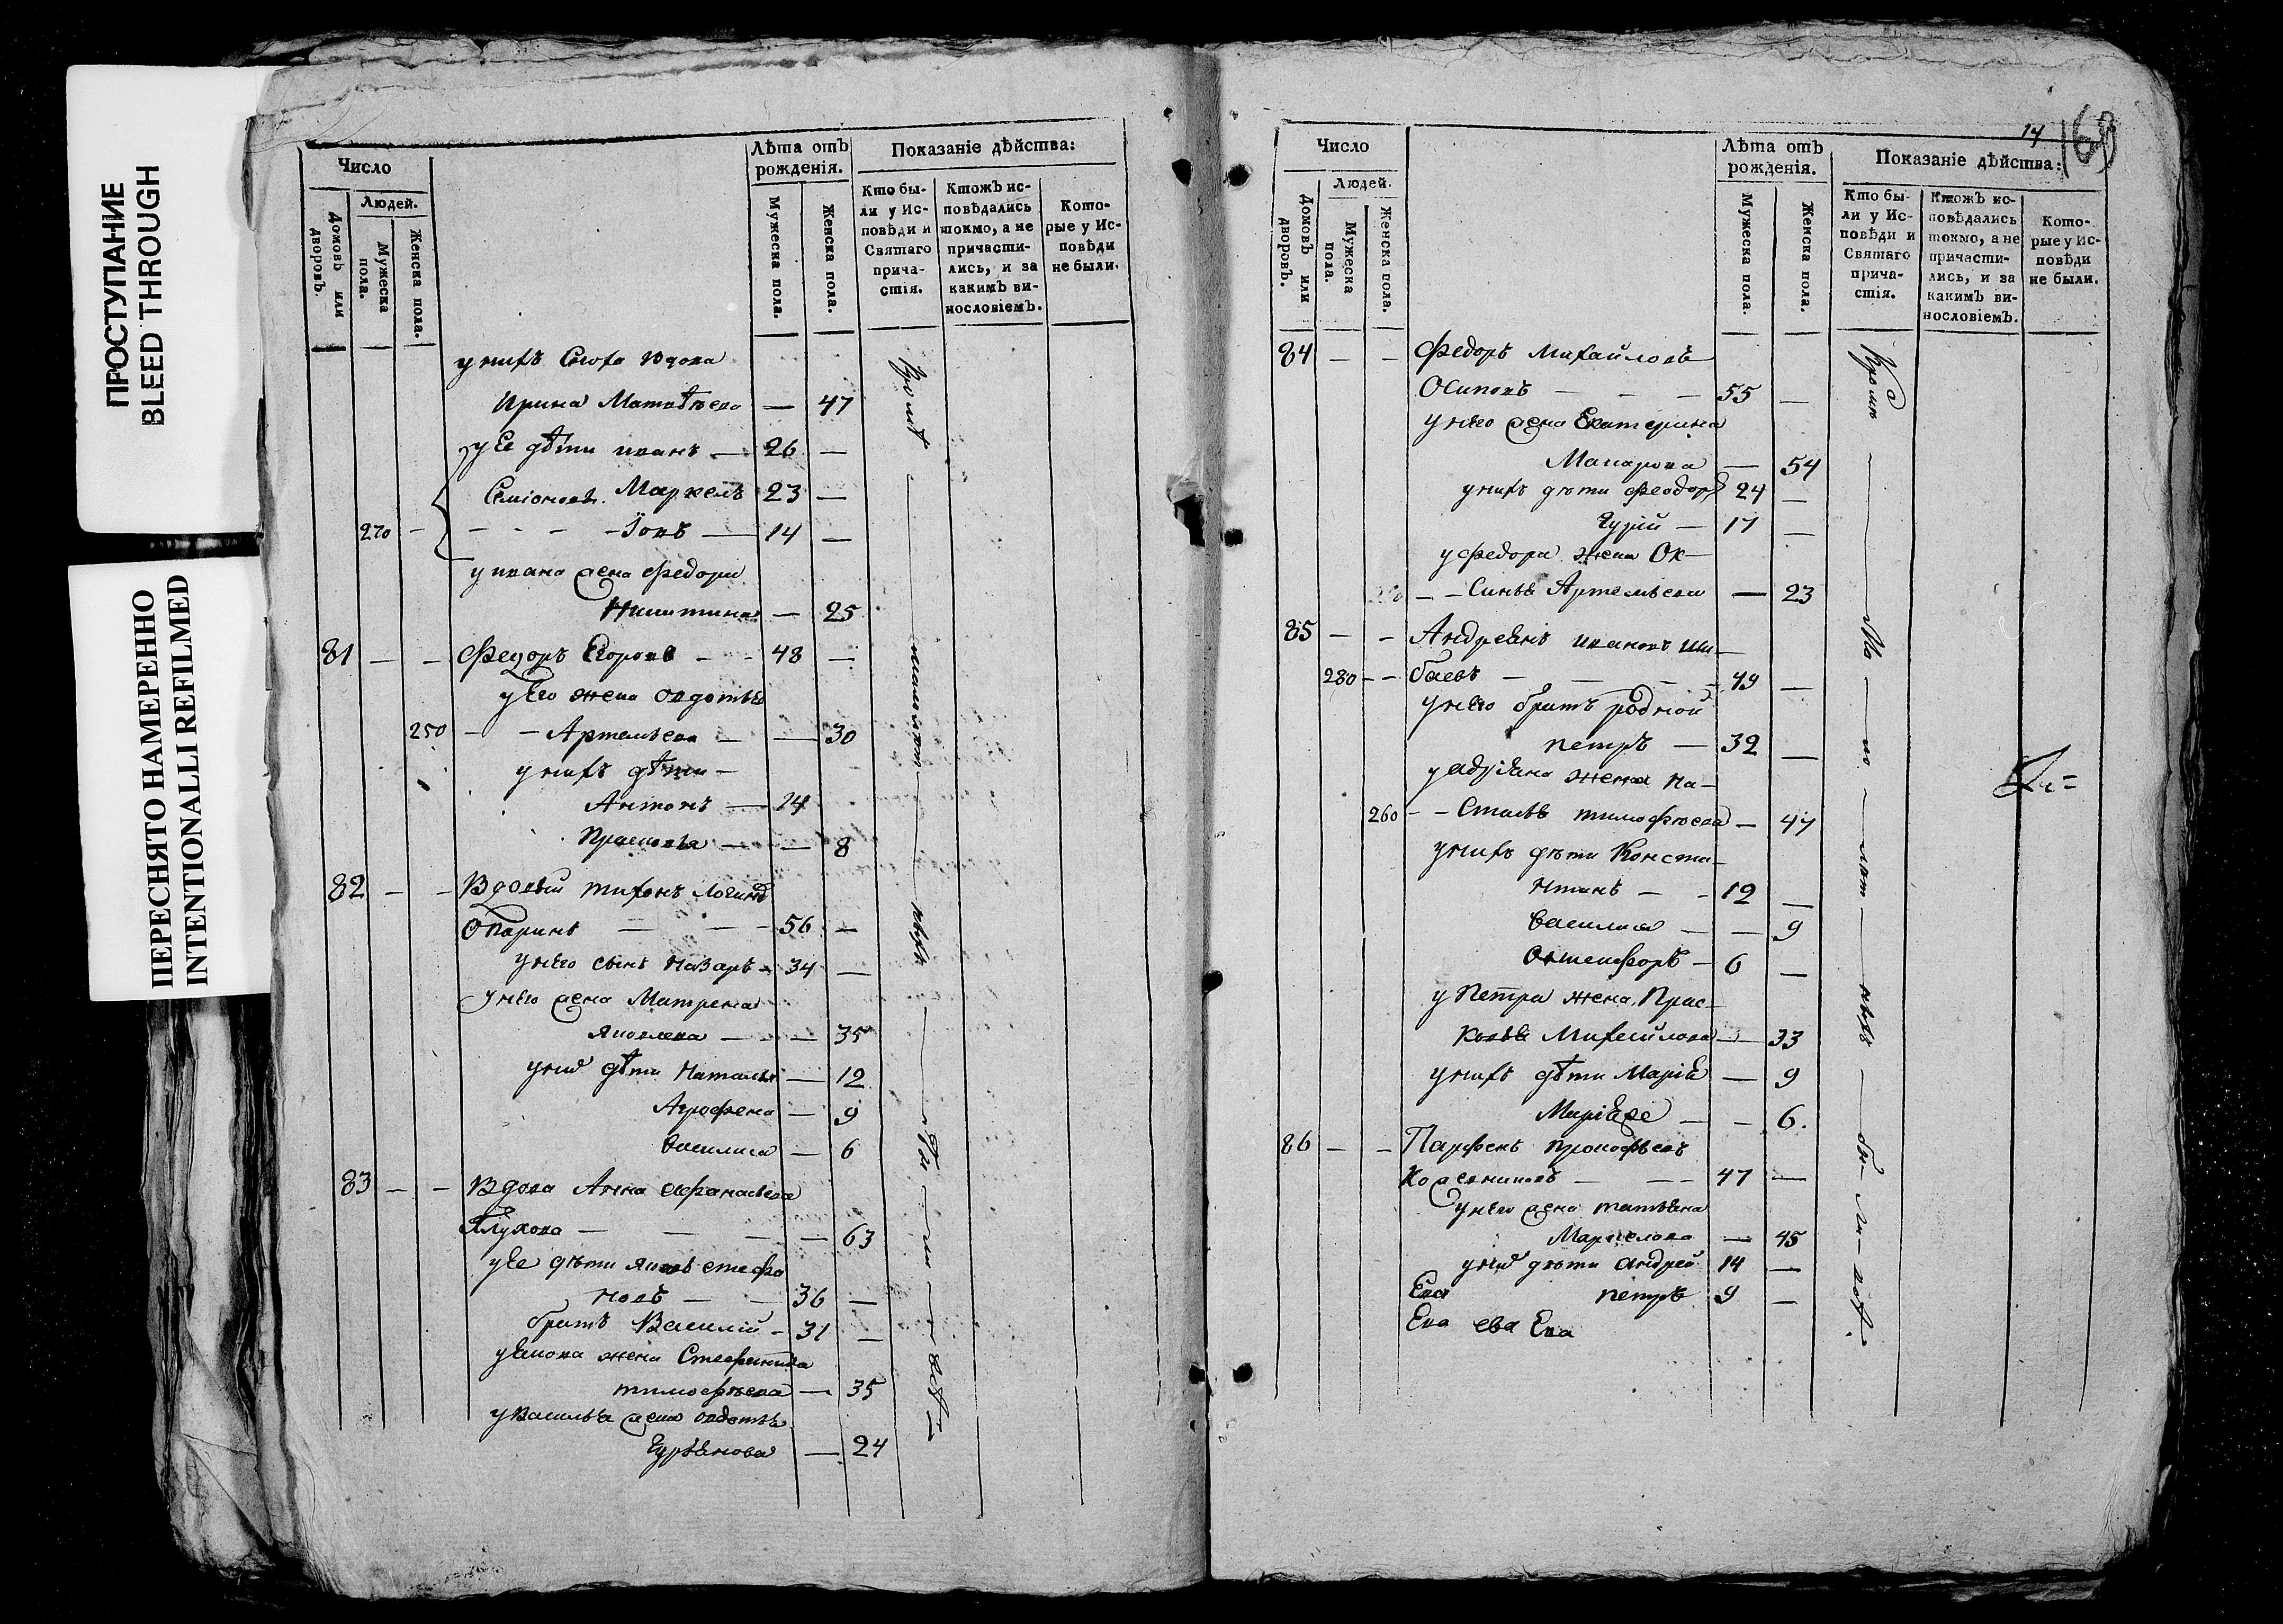 ПРОСТУПАНИЕ
BLEED THROUGH
ПЕРЕСНЯТО НАМЕРЕННО
INTENTIONALLI REFILMED
Число
Людей.
Домовъ или дворовъ.
Мужеска пола.
Женска пола.
Лѣта отъ рожденія.
Мужеска пола.
Женска пола.
Показаніе дѣйства:
Кто бы-
ли у Ис-
повѣди и
Святаго
прича-
стія.
Ктожъ ис-
повѣдались
токмо, а не
причасти-
лись, и за
какимъ ви-
нословіемъ.
Кото-
рые у Ис-
повѣди
не были.
у нихъ Сноха вдова
Ирина Матвѣева — 47
у Ее дѣти иванъ — 26 —
Симіоновы Маркелъ 23 —
270 - - - - Іовъ — 14 —
у ивана жена Федора
Никитина — 25
81 — — Федоръ Егоровъ - - 48 —
у Его жена овдотья
250 - - Артемьева — — 30
у нихъ дѣти —
Антонъ — 14
Прасковья — — 8
82 — — Вдовый тихонъ Логинъ
Опаринъ — — - 56 —
у него сынъ Назаръ - 34 —
у него жена Матрена
Яковлева — — 35
у них дѣти Наталья — 12
Агрофена — 9
Василиса — 6
83 — — Вдова Анна афанасьева
Глухова — — — — 63
у Ее дѣти яковъ стефа
новъ — — 36 —
братъ Василій - 31 —
у якова жена Стефанида
тимофѣева — 35
у Василья жена овдотья
Гурьянова — 24
14
169
Число
Людей.
Домовъ или дворовъ.
Мужеска пола.
Женска пола.
Лѣта отъ рожденія.
Мужеска пола.
Женска пола.
Показаніе дѣйства:
Кто бы-
ли у Ис-
повѣди и
Святаго
прича-
стія.
Ктожъ ис-
повѣдались
токмо, а не
причасти-
лись, и за
какимъ ви-
нословіемъ.
Кото-
рые у Ис-
повѣди
не были.
84 — — Федоръ Михайловъ
Осиповъ — - — 55 —
у него жена Екатерина
Макарова — 54
у нихъ дѣти Феодоръ 24 —
Гурій — 17 —
у Федора жена Ок—
— — Синья Артемьева — 23
85 — - Андреянъ ивановъ ши—
280 - - баевъ — — - - 49 —
у него братъ родной
петръ — 32 —
у адріяна жена На—
260 - - Стасья тимофѣева — 47
у нихъ дѣти Конста—
нтинъ — - 12 —
Василиса — — 9
6 —
у Петра жена Прас—
ковья Михайлова — 33
у нихъ дѣти Марія — 9
— - 6.
86 — — Парфенъ прокофьевъ
Колесниковъ — — - 47 —
у него жена татьяна
Маркелова — 45
у них дѣти андрей 14 —
Ева петръ 9 —
Ева ева Ева